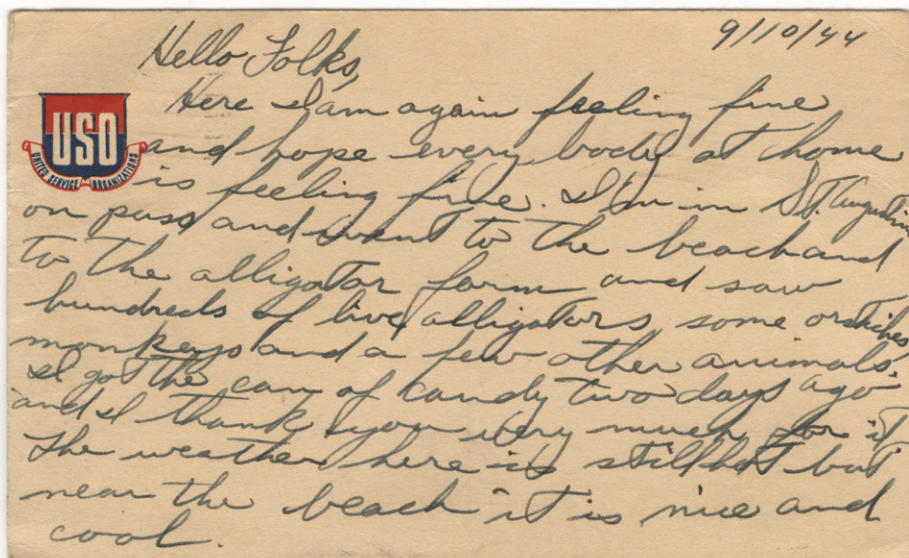 9/10/44
Hello Folks,
Here I am again feeling fine
and hope every body at home
is feeling fine. I'm in St. Augustine
on pass and went to the beach and
to the alligator farm and saw
hundreds of live alligators, some ostriches,
monkeys and a few other animals.
I got the can of candy two days ago
and I thank you very much for it.
The weather here is still hot but
near the beach it is nice and
cool.
USO
UNITED SERVICE ORGANIZATIONS